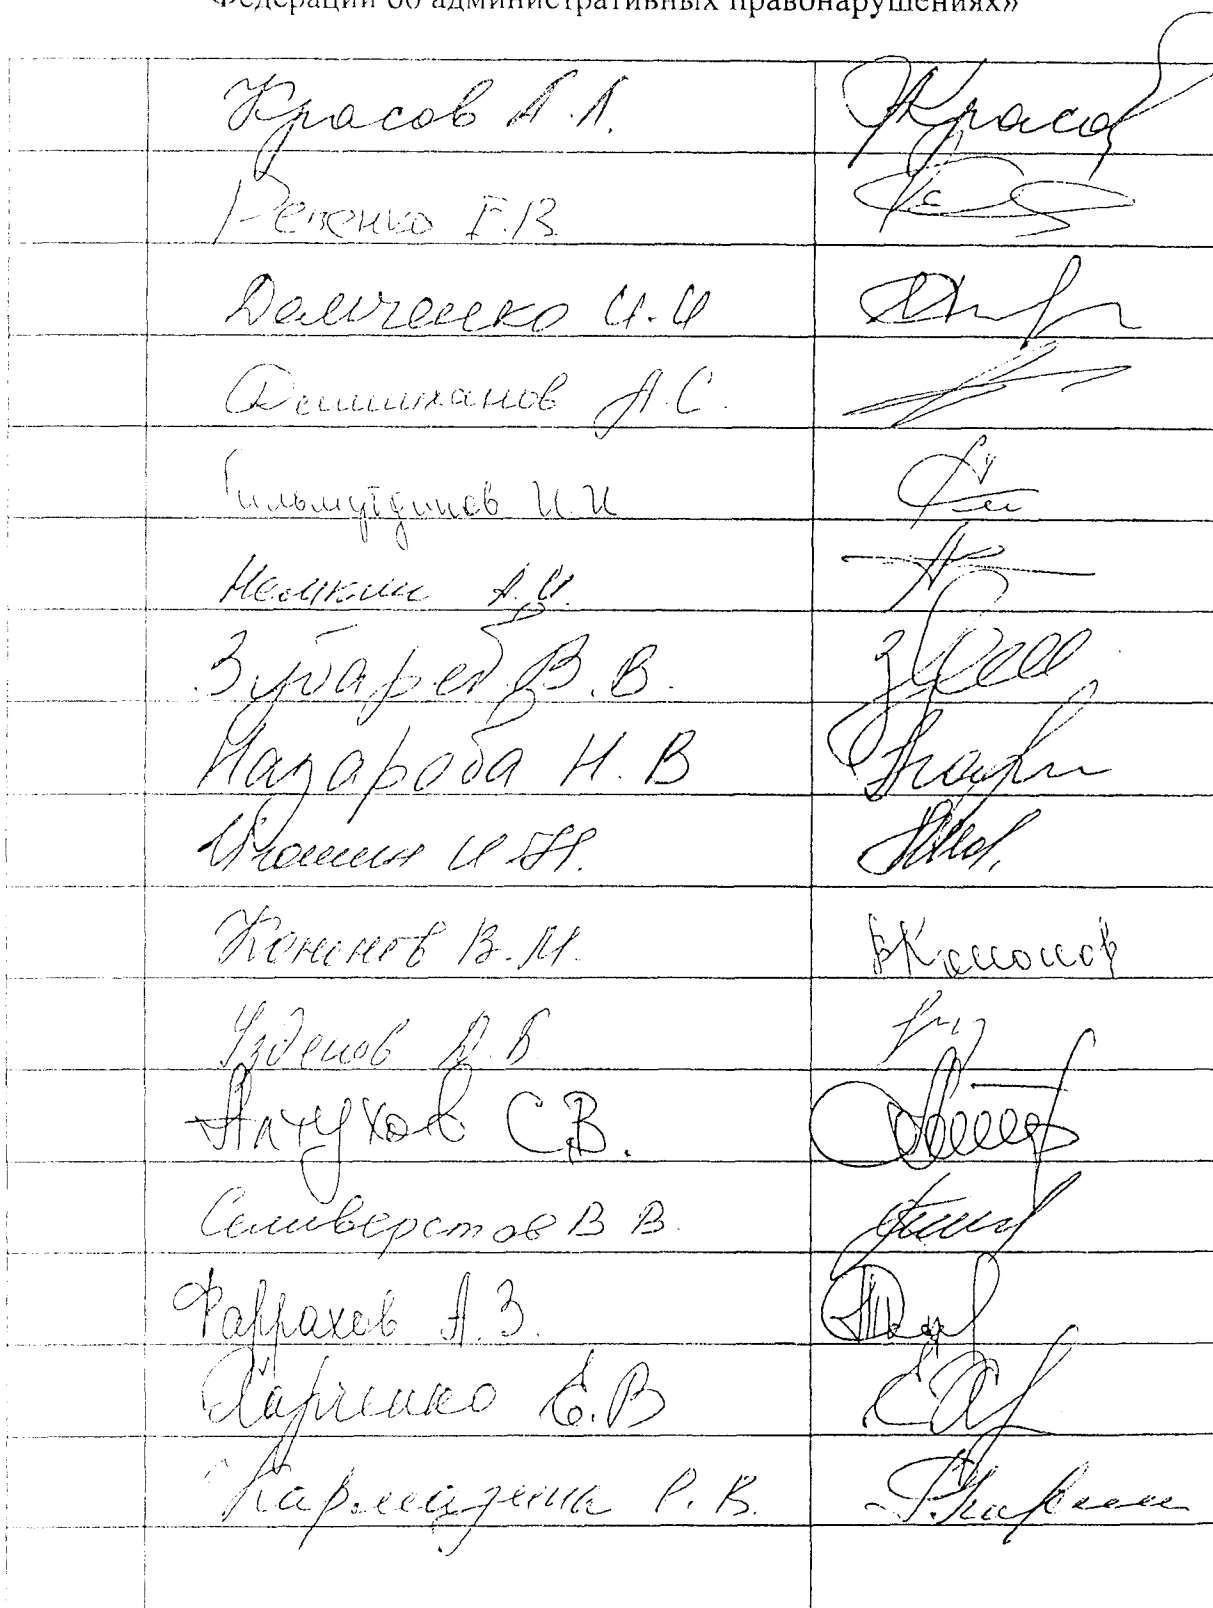 Федерации об административных правонарушениях»
Красов А.Л. Красов
Ревенко Е.В.
Дамченко И.И
А.С.
Гильмутдинов И.И
Немкин А.И.
Зубарев В.В.
Назарова Н.В
Игошин И.Н.
Кононов В.М. ВКононов
Узденов Д.Б
Алтухов С.В.
Селиверстов В В.
Фаррахов А.З.
Харченко Е.В
Кармазина Р.В.